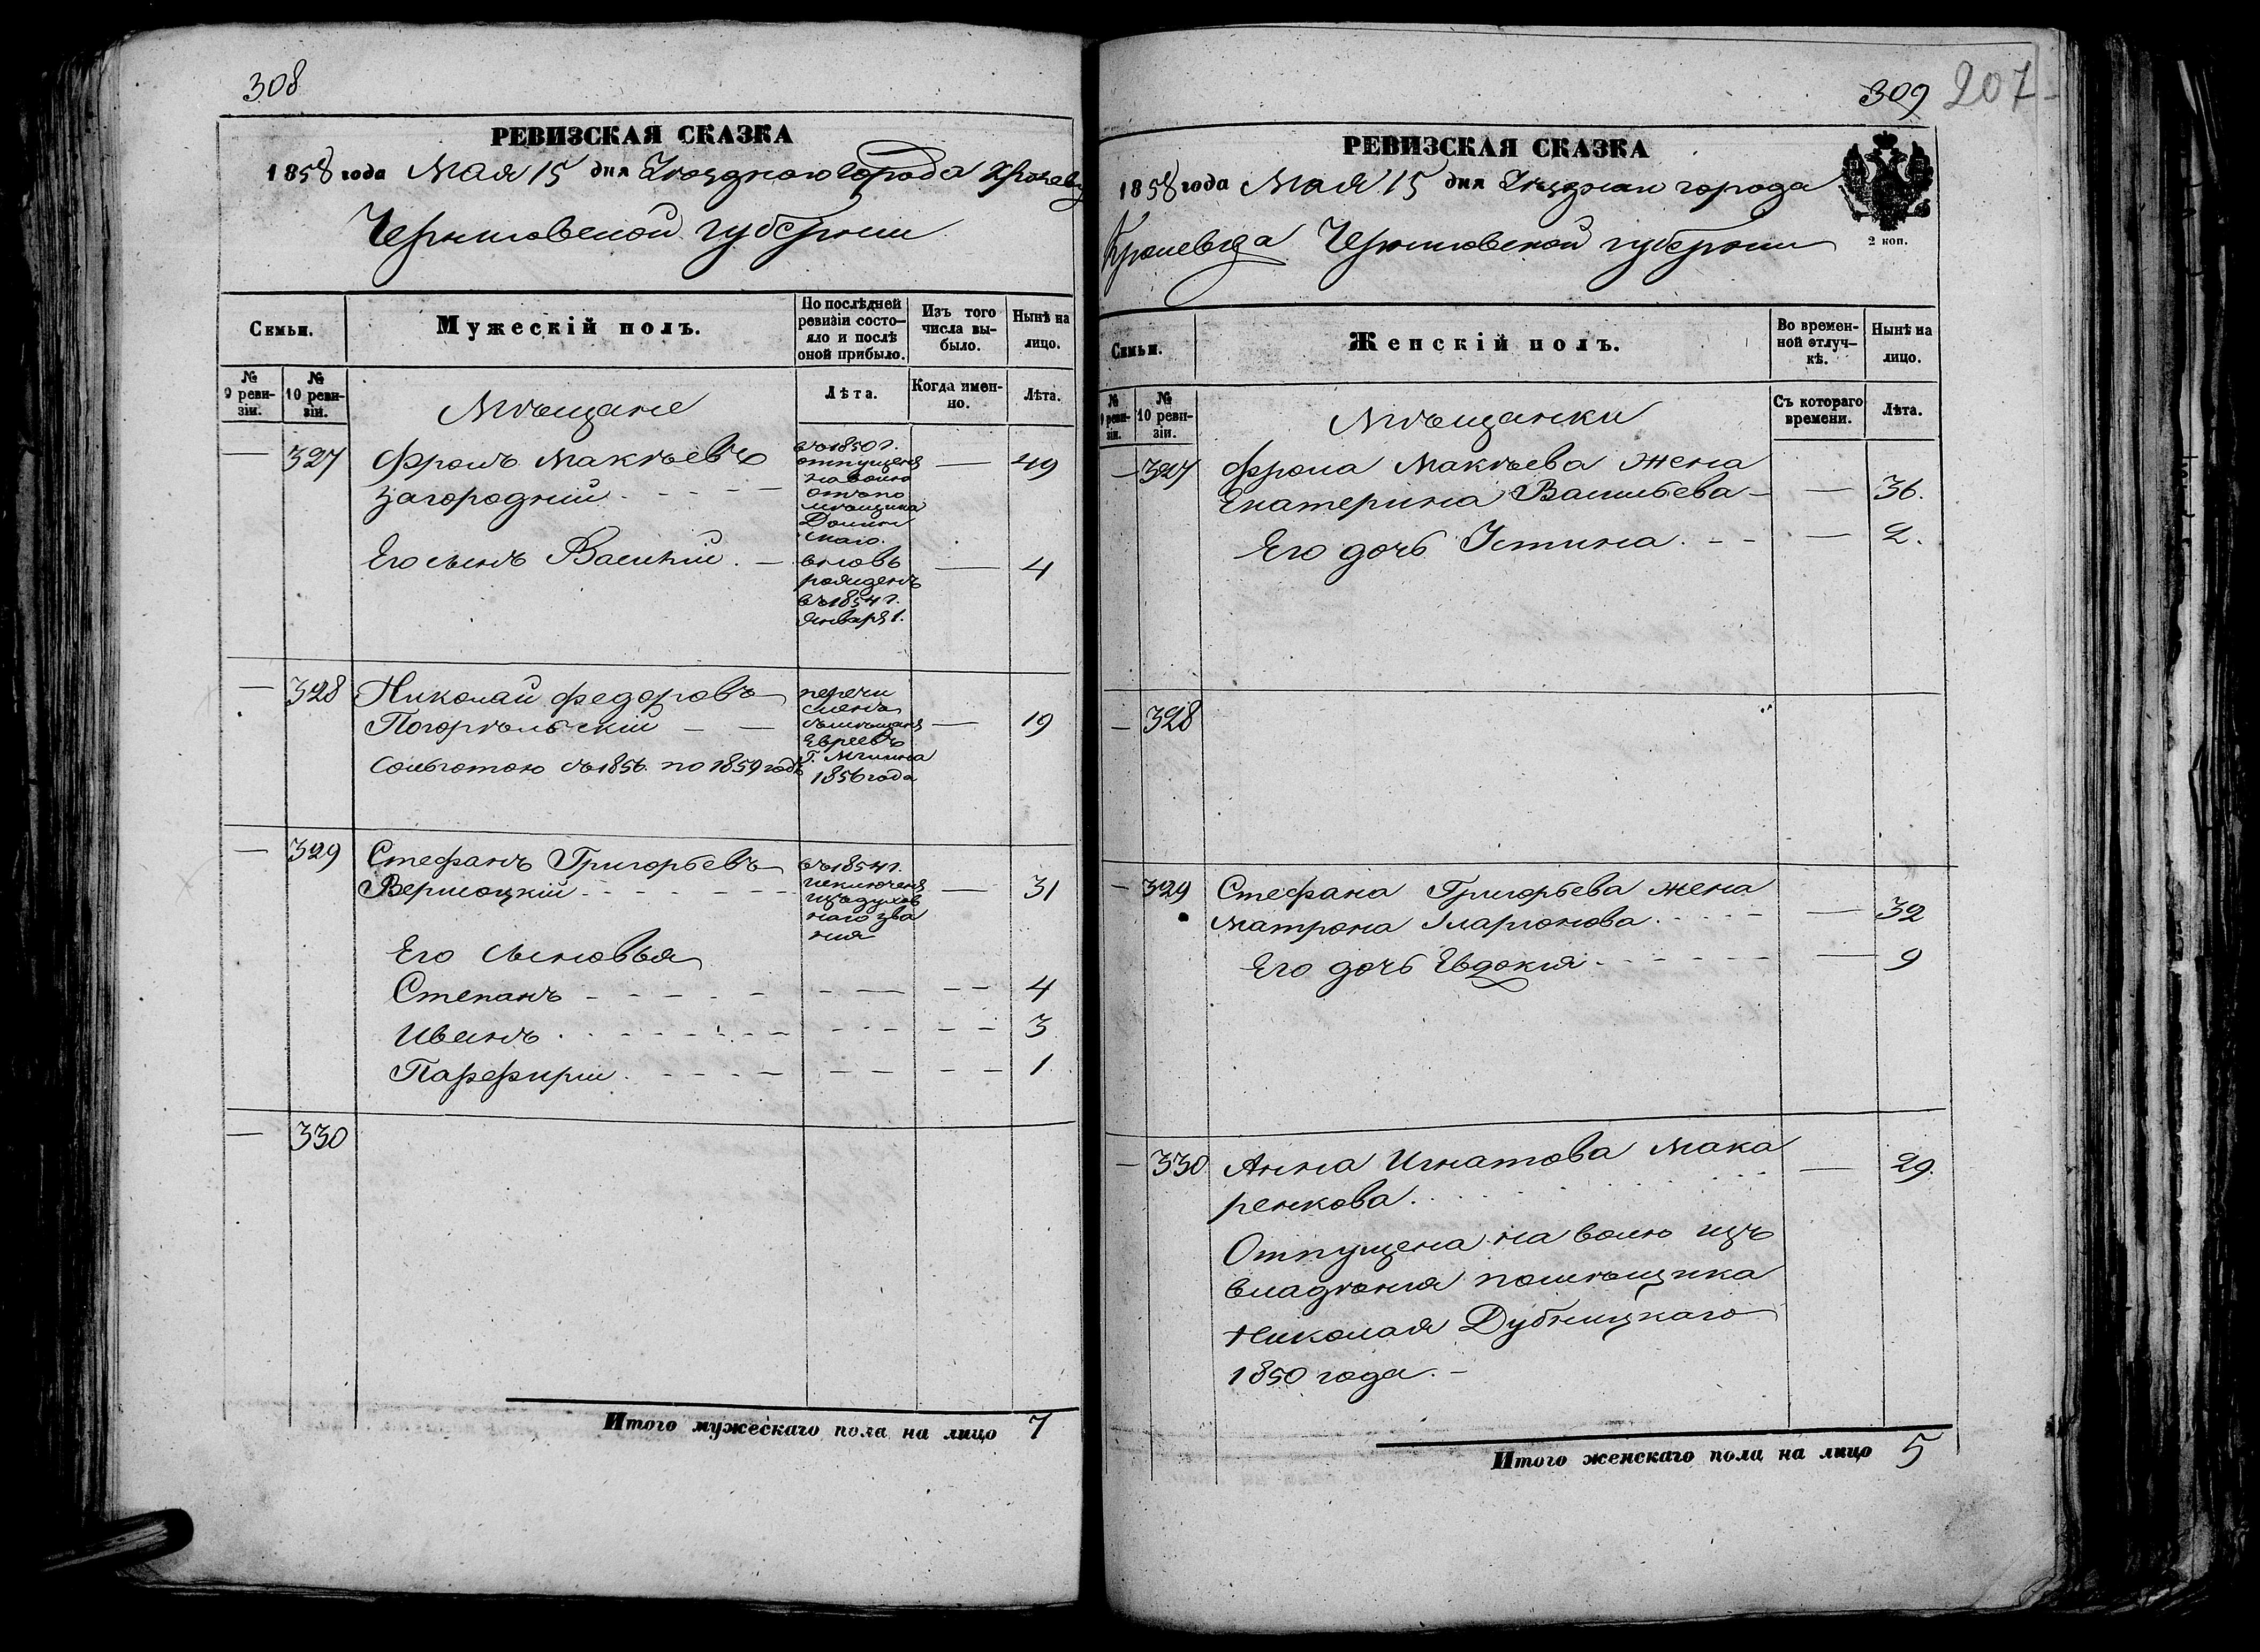 308
РЕВИЗСКАЯ СКАЗКА
1858 года Мая 15 дня Уѣзднаго города Кролевца
Черниговской губерніи
Семьи.
Мужескій полъ.
По послѣдней ревизіи состояло и послѣ оной прибыло.
Изъ того числа выбыло.
Нынѣ на лицо.
№ 9 ревизіи.
№ 10 ревизіи.
Лѣта.
Когда именно.
Лѣта.
Мѣщане
— 327 Фролъ Макѣевъ
Загородній
въ 1850 г.
отпущенъ
на волю
отъ по
мѣщика
— 49
Его сынъ Василій
вновь
рожденъ
въ 1854 г.
Января 1.
— 4
— 328 Николай Федоровъ
Погорѣльскій
Сольготою съ 1856 по 1859 годъ
перечи
сленъ
Евреевъ
1856 года
— 19
— 329 Стефанъ Григорьевъ
въ 1854 г.
исключенъ
изъ духов
наго зва
нія
— 31
Его сыновья
Степанъ 4
Иванъ 3
Парфирій 1
— 330
Итого мужескаго пола на лицо 7
309 207
РЕВИЗСКАЯ СКАЗКА
1858 года Мая 15 дня Уѣзднаго города
Кролевца Черниговской губерніи
2 коп.
Семьи.
Женскій полъ.
Во временной отлучкѣ.
Нынѣ на лицо.
№ 9 ревизіи.
№ 10 ревизіи.
Съ котораго времени.
Лѣта.
Мѣщанки
— 327 Фрола Макѣева жена
Екатерина Васильева — 36.
Его дочь Устина — 2.
— 328
— 329 Стефана Григорьева жена
Матрона Иларіонова — 32
Его дочь Евдокія — 9
— 330 Анна Игнатова Мака
ренкова. — 29.
Отпущена на волю изъ
владѣнія помѣщика
Николая Дубницкаго
1850 года. –
Итого женскаго пола на лицо 5